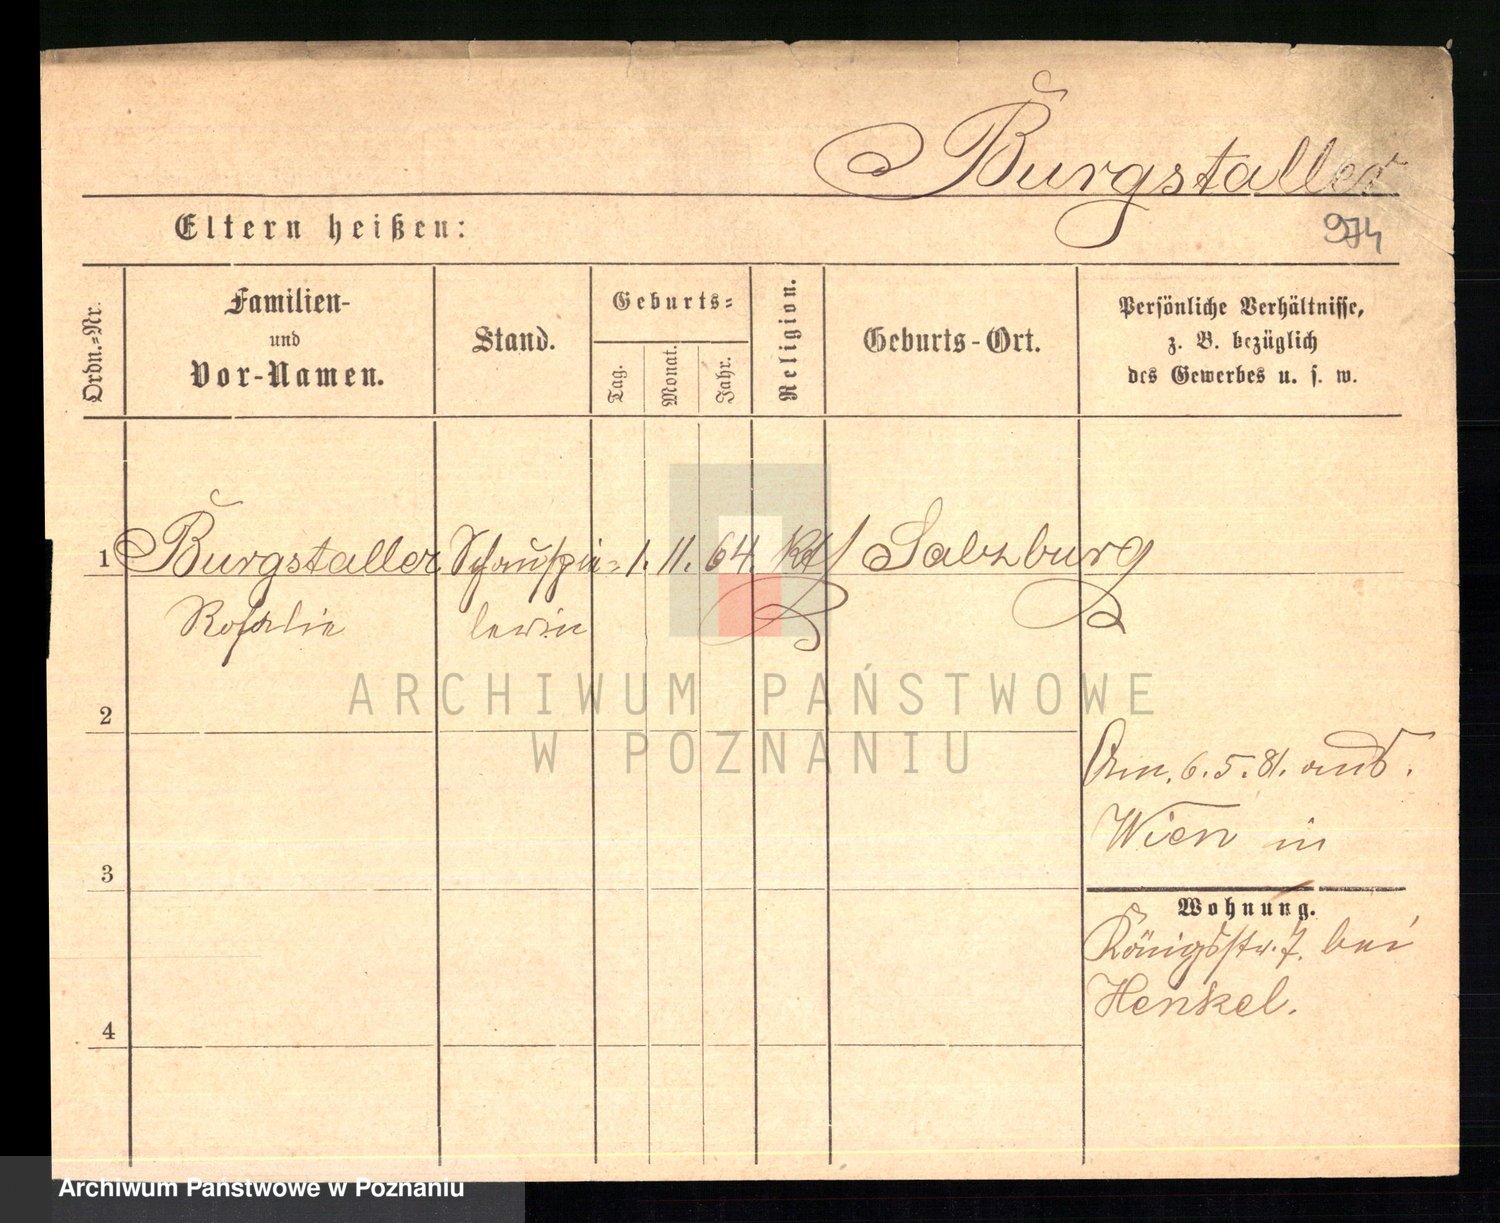 Burgstaller
974
Eltern heißen:
Ordn.-Nr.
Familien-
und
Vor-Namen.
Stand.
Geburts-
Tag.
Monat.
Jahr.
Religion.
Geburts-Ort.
Persönliche Verhältnisse,
z. B. bezüglich
des Gewerbes u. s. w.
1 Burgstaller Schauspie- 1. 11. 64. Salzburg
Rosalie lerin
ARCHIWUM PAŃSTWOWE
W POZNANIU
2
6. 5. 81. aus
Wien in
3
Wohnung.
Königsstr. 7. bei
Henkel.
4
Archiwum Państwowe w Poznaniu